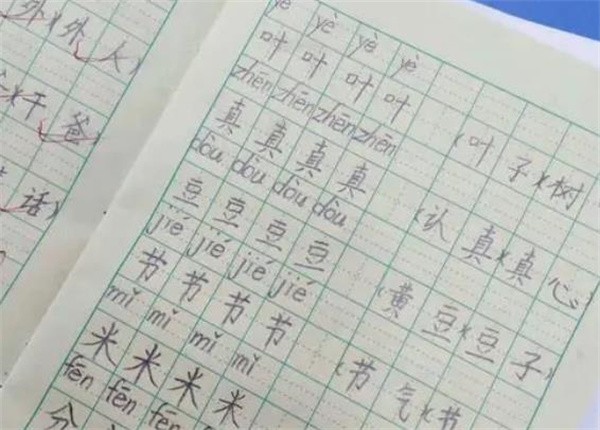 外)(外人)
干爸)
话)
yè yè yè yè
叶叶叶叶 (叶子)(树
zhēn zhēn zhēn zhēn
真真真真 (认真)(真心)
dòu dòu dòu dòu
豆豆豆豆 (黄豆)(豆子)
jié jié jié jié
节节节节 (节气)(节
mǐ mǐ mǐ mǐ
米米米米
fēn fēn fēn fēn
分